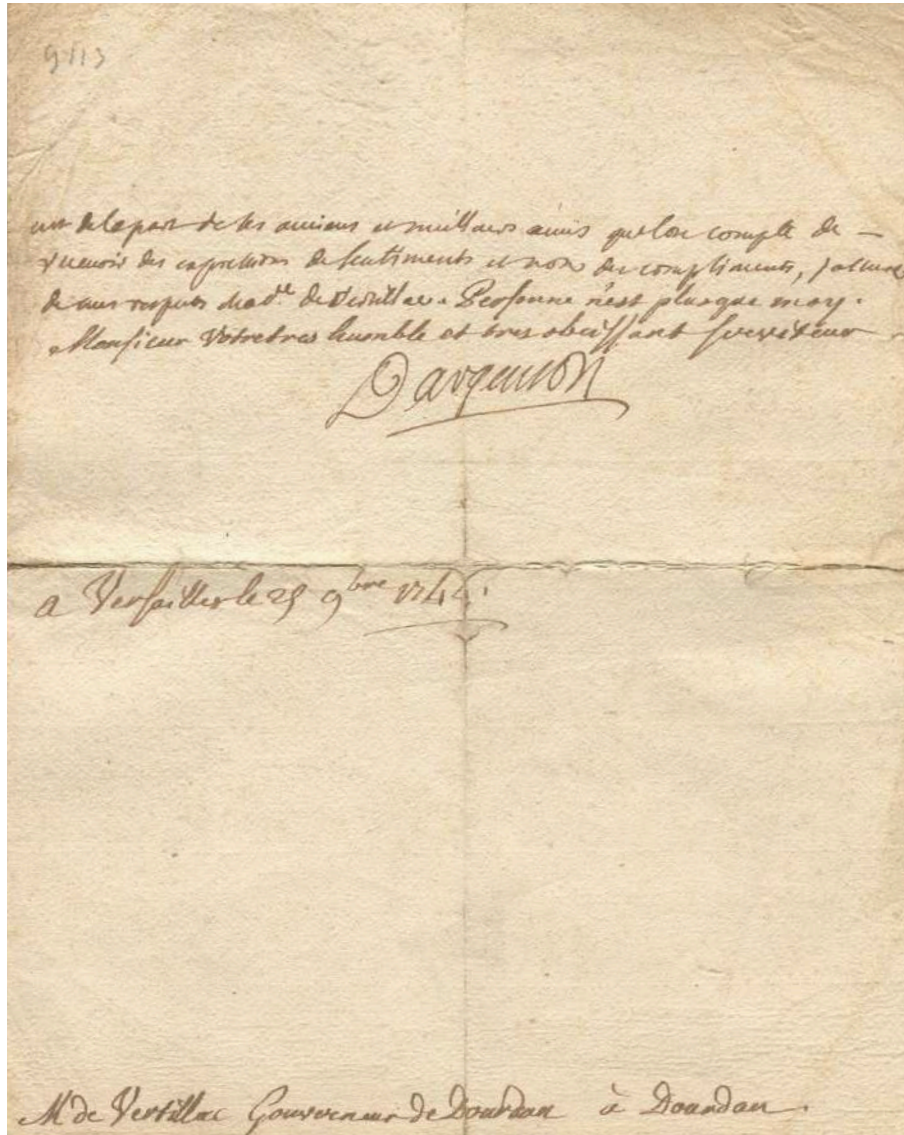 9113
est de la part de ses anciens et meilleurs amis que l'on compte de —
recevoir des expressions de sentiments et non des compliments, j'assure
de mes respects Mad.e de Vertillac. Personne n'est plus que moy.
Monsieur Votre tres humble et tres obeissant serviteur
Dargenson
a Versailles le 25 9bre 1744.
Mr de Vertillac Gouverneur de Dourdan à Dourdan.